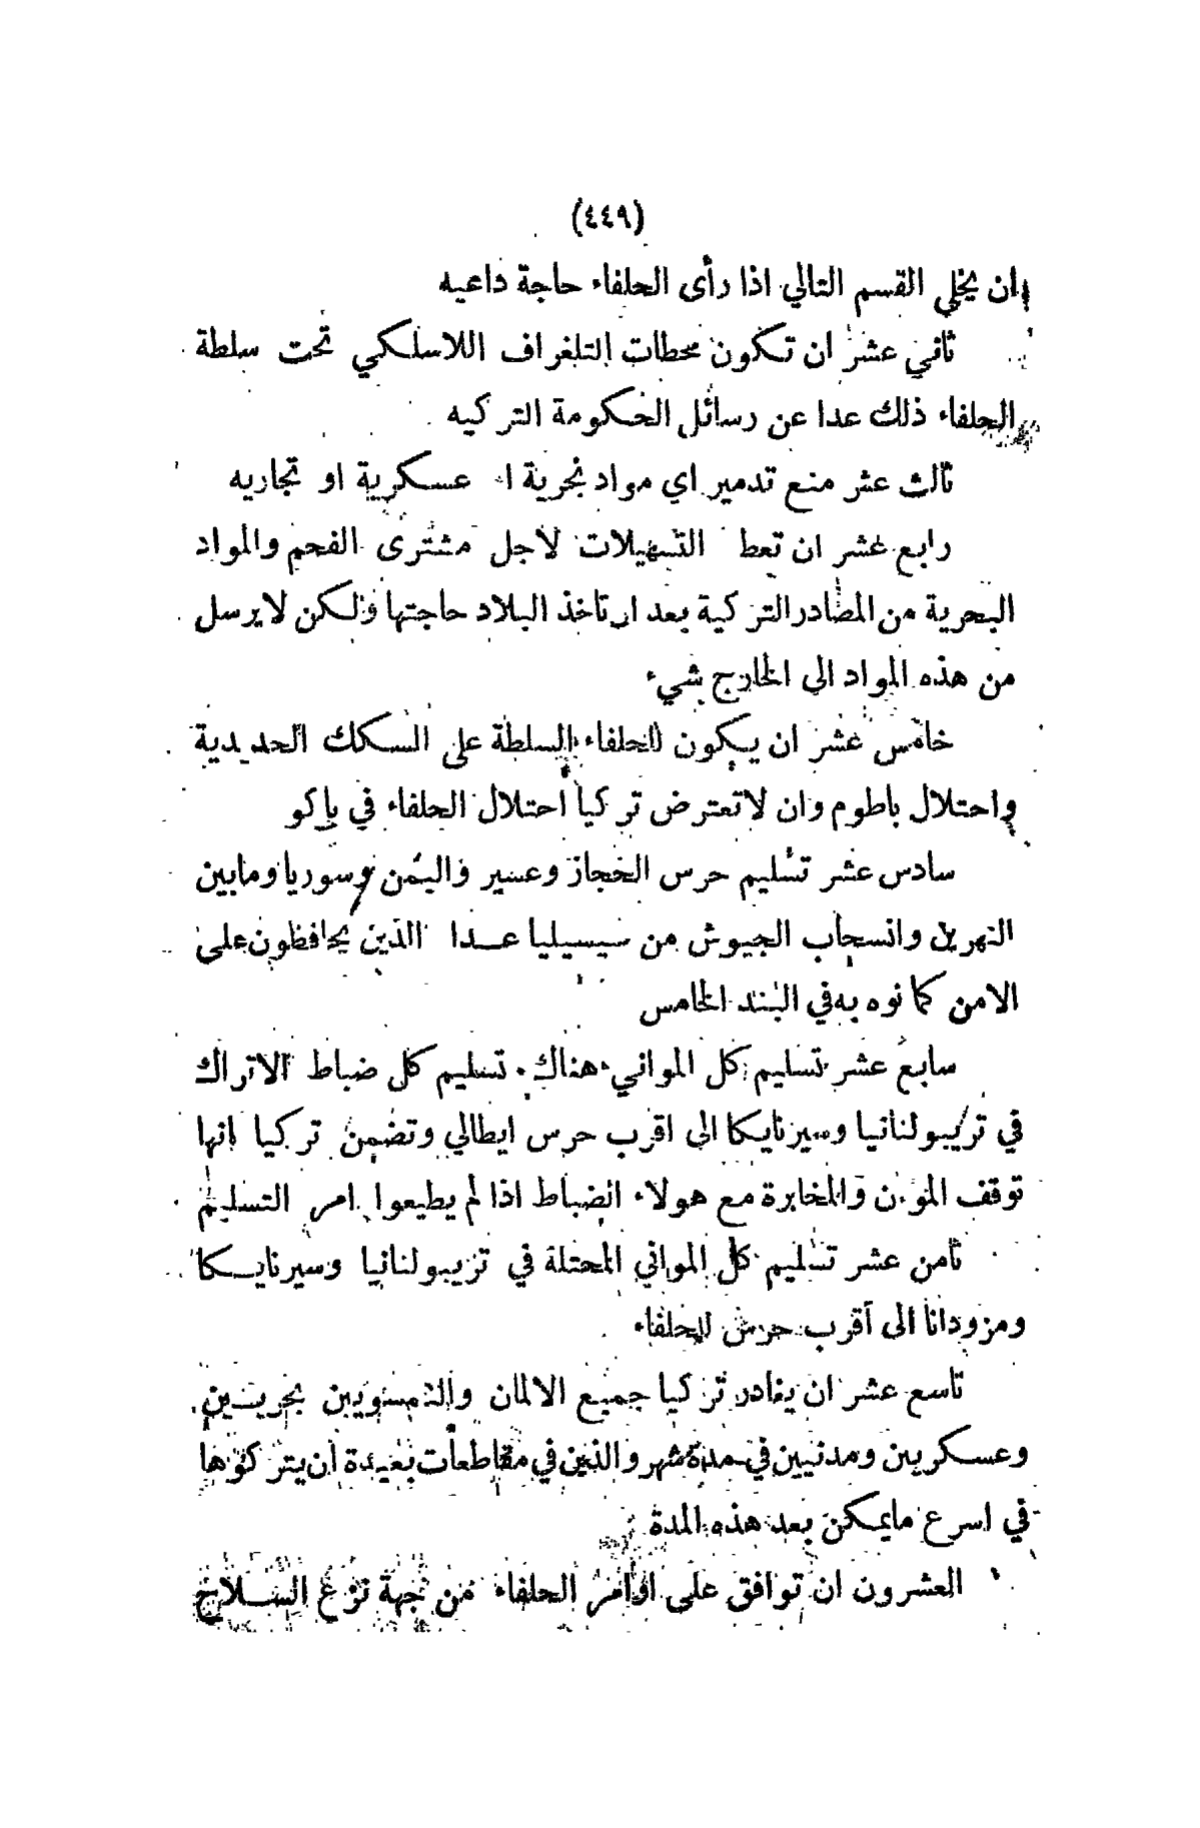 (٤٤٩)
ان يخلي القسم التالي اذا رأى الحلفاء حاجة داعيه
ثاني عشر ان تكون محطات التلغراف اللاسلكي تحت سلطة
الحلفاء ذلك عدا عن رسائل الحكومة التركيه
ثالث عشر منع تدمير اي مواد بحرية ا عسكرية او تجاريه
رابع عشر ان تعط التسهيلات لاجل مشترى الفحم والمواد
البحرية من المصادر التركية بعد ان تاخذ البلاد حاجتها ولكن لا يرسل
من هذه المواد الى الخارج شيء
خامس عشر ان يكون للحلفاء السلطة على السكك الحديدية
واحتلال باطوم وان لا تعترض تركيا احتلال الحلفاء في باكو
سادس عشر تسليم حرس الحجاز وعسير واليمن وسوريا ومابين
النهرين وانسحاب الجيوش من سيسيليا عدا الذين يحافظون على
الامن كما نوه به في البند الخامس
سابع عشر تسليم كل المواني هناك. تسليم كل ضباط الاتراك
في تريبولنانيا وسيرنايكا الى اقرب حرس ايطالي وتضمن تركيا انها
توقف المؤن والمخابرة مع هولاء الضباط اذا لم يطيعوا امر التسليم
ثامن عشر تسليم كل المواني المحتلة في تريبولنانيا وسيرنايكا
ومزودانا الى أقرب حرس للحلفاء
تاسع عشر ان يغادر تركيا جميع الالمان والنمسويين بحريين
وعسكريين ومدنيين في مدة شهر والذين في مقاطعات بعيدة ان يتركوها
في اسرع مايمكن بعد هذه المدة
العشرون ان توافق على اوامر الحلفاء من جهة نزع السلاح